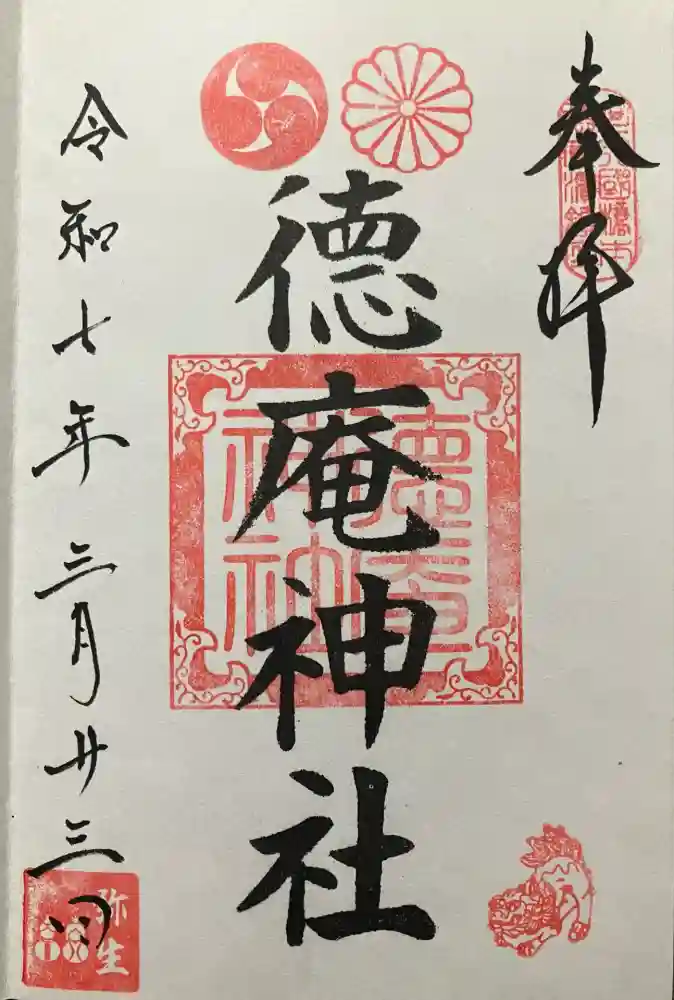 奉拝
徳庵神社
令和七年三月廿三日
徳庵
神社
弥生